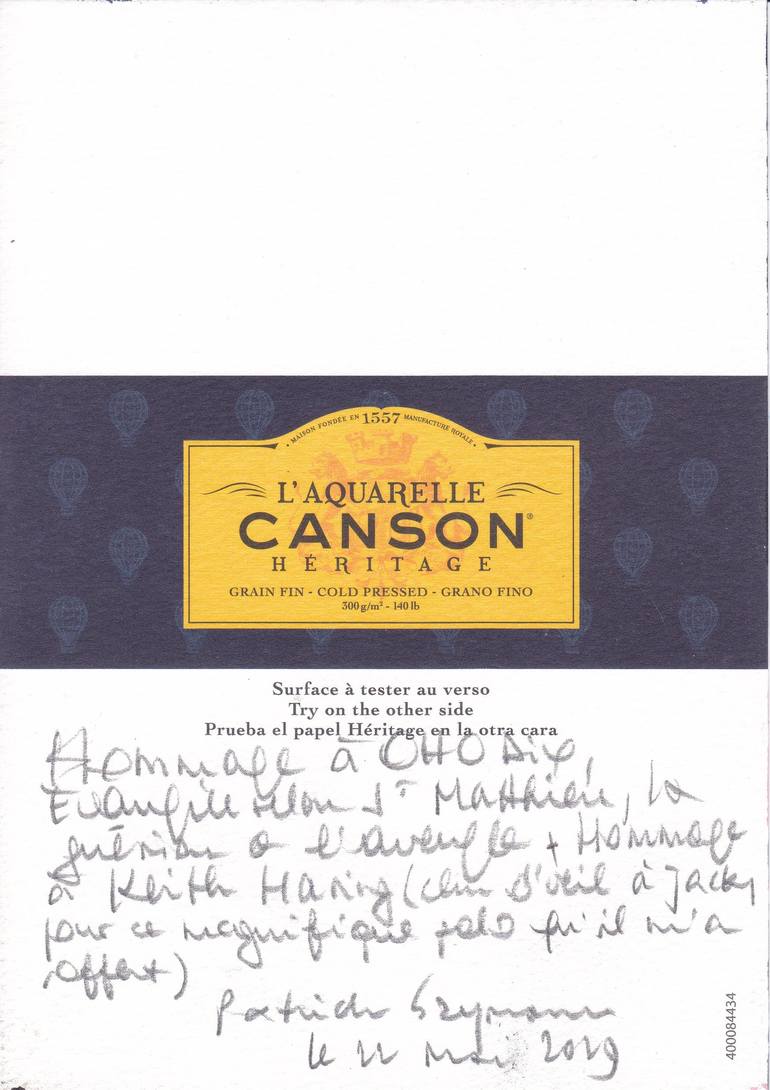 MAISON FONDÉE EN 1557 MANUFACTURE ROYALE
L'AQUARELLE
CANSON®
HÉRITAGE
GRAIN FIN - COLD PRESSED - GRANO FINO
300 g/m² - 140 lb
Surface à tester au verso
Try on the other side
Prueba el papel Héritage en la otra cara
Hommage à OTTO Dix,
Evangile selon St Matthieu, la
guérison de l'aveugle + Hommage
à Keith Haring (clin d'oeil à Jacky
pour ce magnifique polo qu'il m'a
offert)
Patrick
le 22 mai 2019
400084434